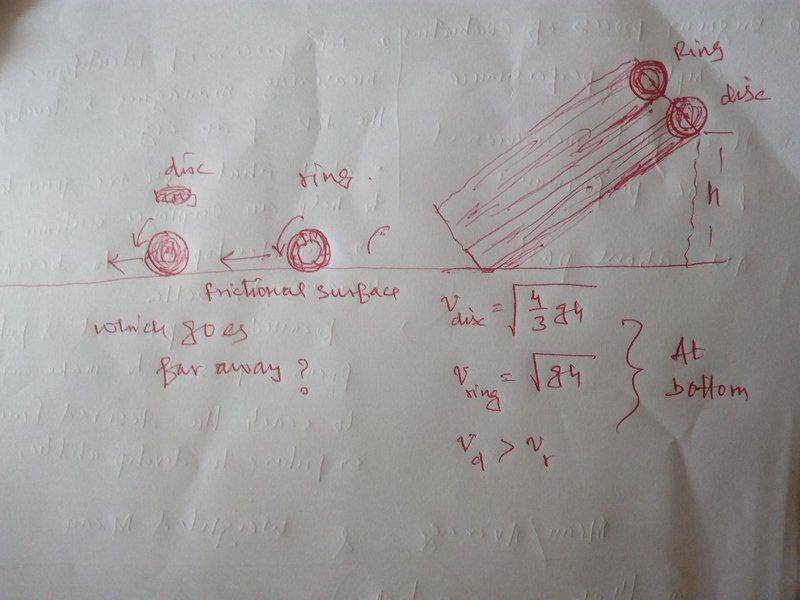 Ring
disc
disc
ring.
h
frictional surface
which goes
far away?
V_disc = √(4/3 gh)
V_ring = √gh
At
bottom
V_d > V_r